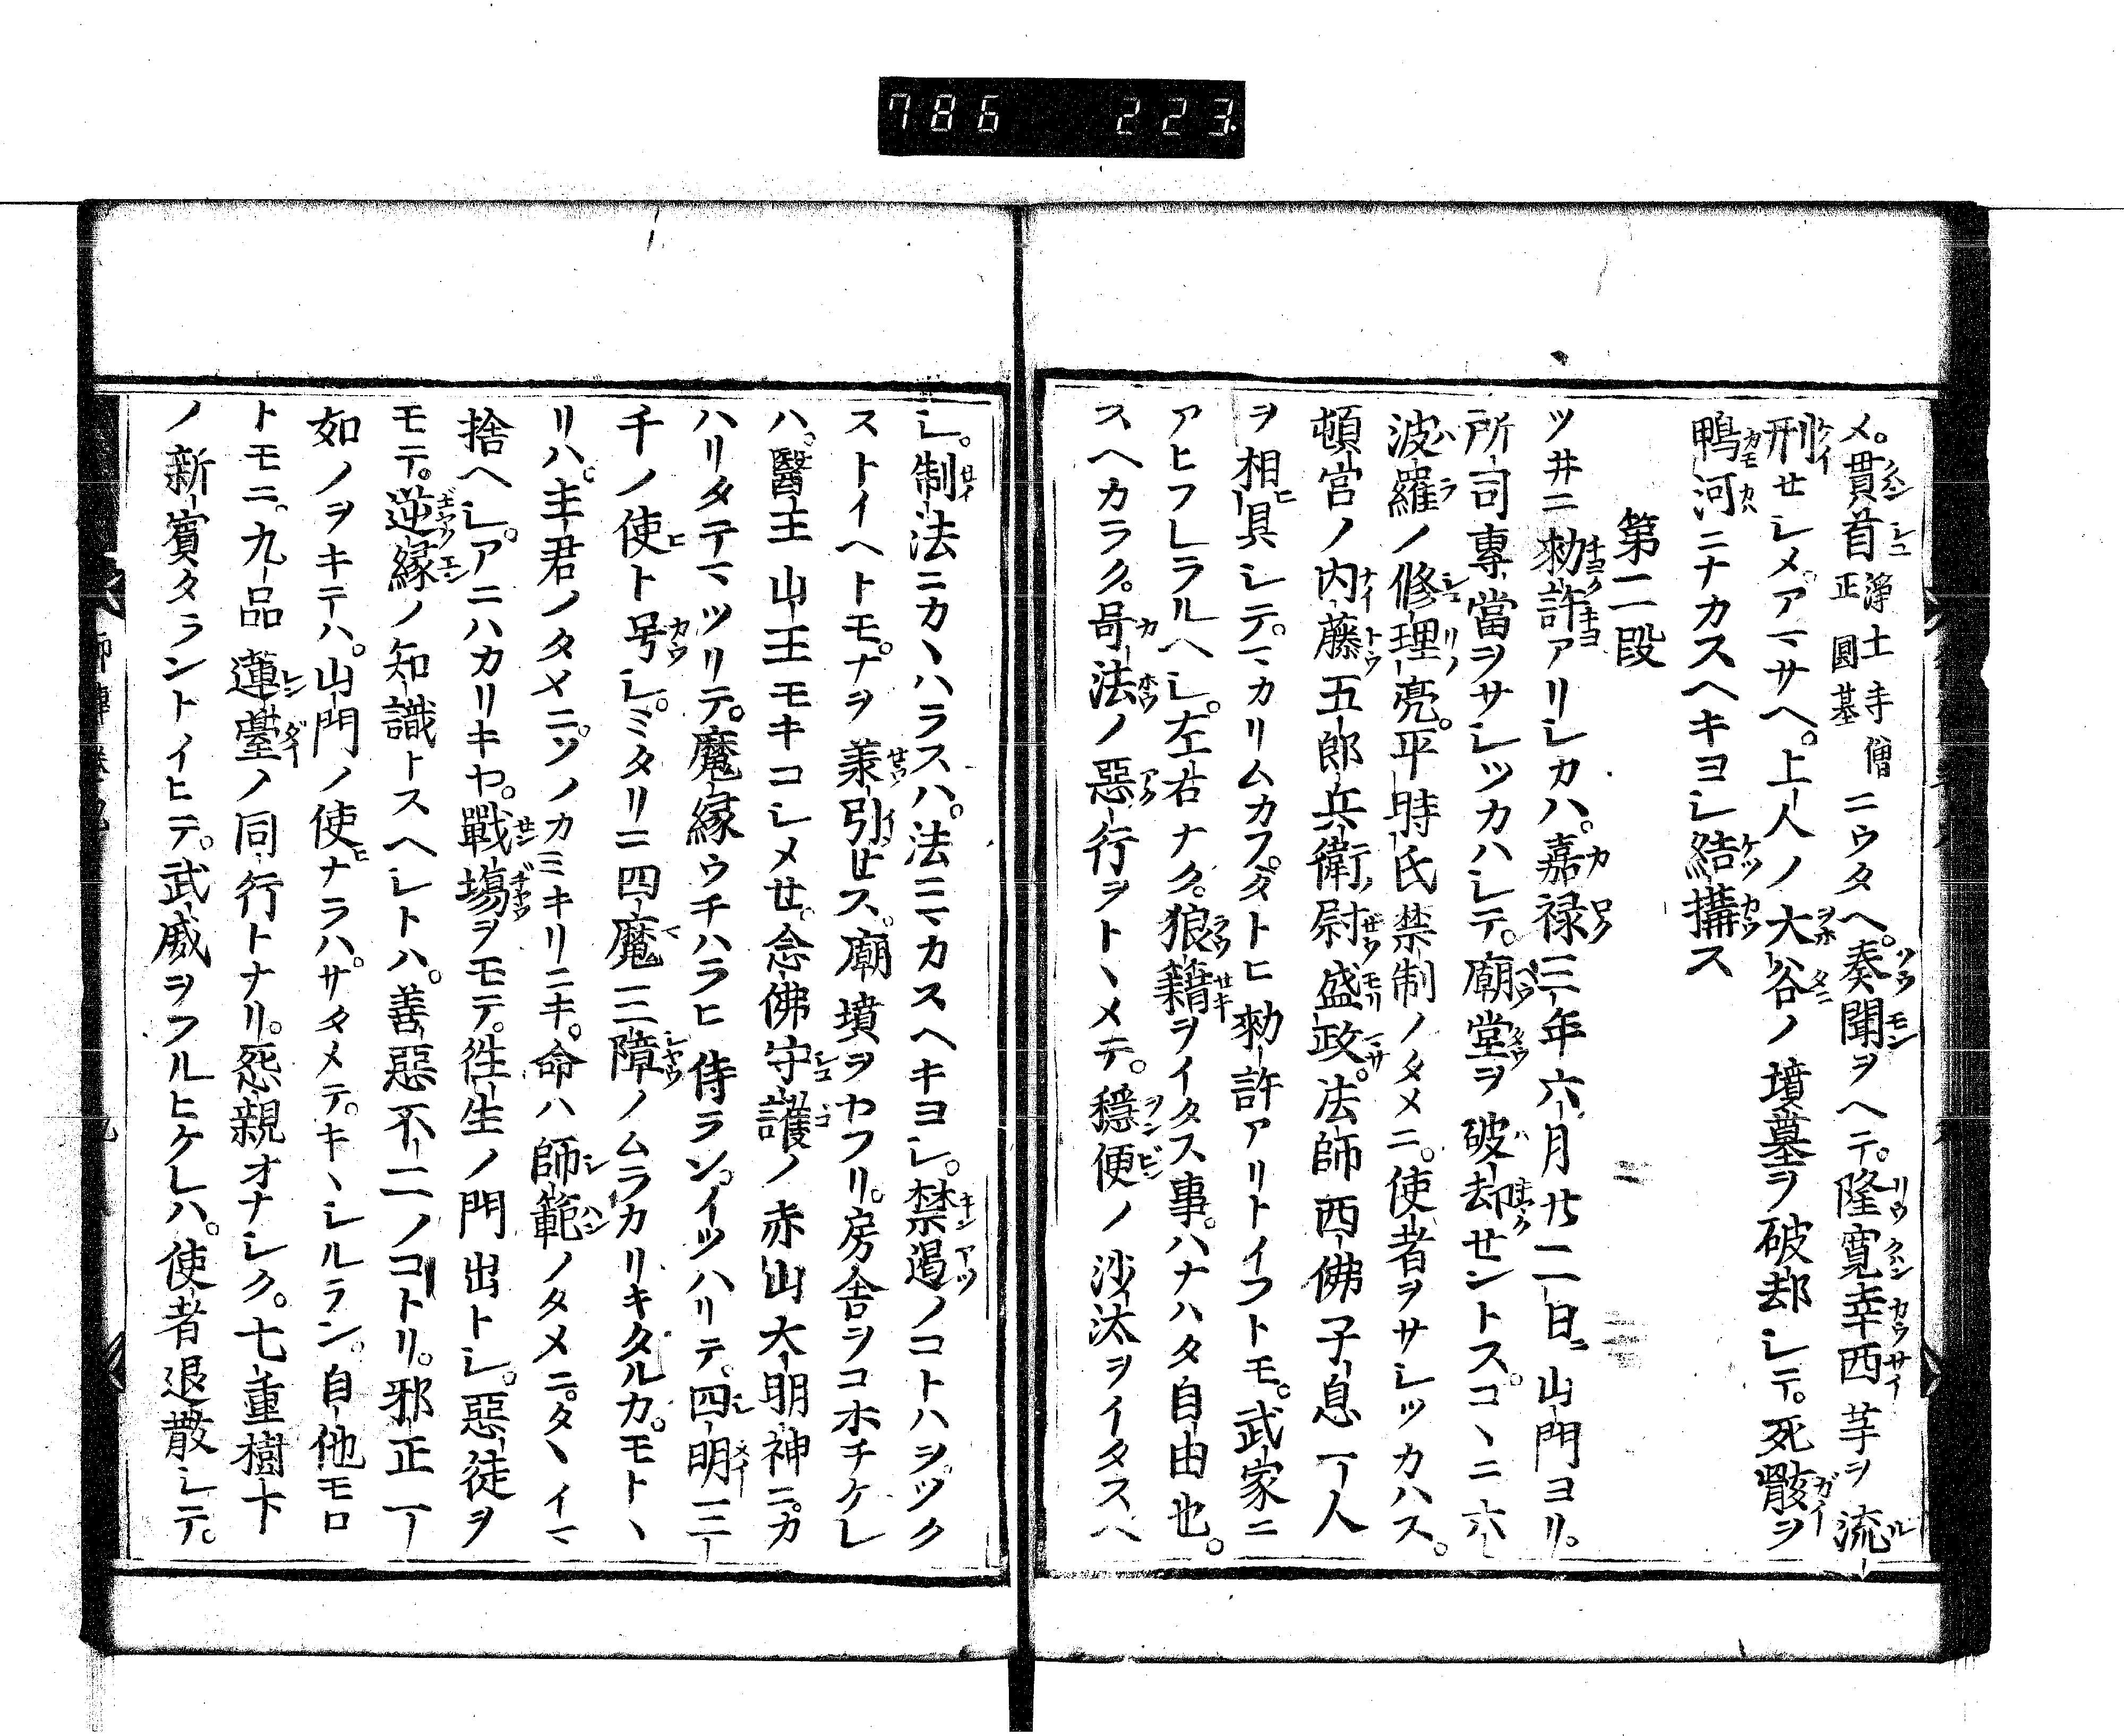 786 223.
メ。貫首浄土寺僧正圓基ニウタヘ。奏聞ヲヘテ。隆寛幸西等ヲ流
刑セシメ。アマサヘ。上人ノ大谷ノ墳墓ヲ破却シテ。死骸ヲ
鴨河ニナカスヘキヨシ結搆ス
第二段
ツ井ニ勅許アリシカハ。嘉禄三年六月廿二日ニ山門ヨリ。
所司專當ヲサシツカハシテ。廟堂ヲ破却セントス。コヽニ六
波羅ノ修理亮。平時氏禁制ノタメニ。使者ヲサシツカハス。
頓宮ノ内藤五郎兵衛尉盛政。法師西佛子息一人
ヲ相具シテ。マカリムカフ。タトヒ勅許アリトイフトモ。武家ニ
アヒフレラルヘシ。左右ナク。狼籍ヲイタス事。ハナハタ自由也。
スヘカラク。苛法ノ惡行ヲトヽメテ。穏便ノ沙汰ヲイタスヘ
シ。制法ニカヽハラスハ。法ニマカスヘキヨシ。禁遏ノコトハヲツク
ストイヘトモ。ナヲ兼引せス。廟墳ヲヤフリ。房舎ヲコホチケレ
ハ。醫王山王モキコシメせ。念佛守護ノ赤山大明神ニ。カ
ハリタテマツリテ。魔縁ウチハラヒ侍ラン。イツハリテ。四明三
千ノ使ト号シ。ミタリニ四魔三障ノムラカリキタルカ。モトヽ
リハ。主君ノタメニ。ソノカミキリニキ。命ハ師範ノタメニ。タヽイマ
捨ヘシ。アニハカリキヤ。戰塲ヲモテ。徃生ノ門出トシ。惡徒ヲ
モテ。逆縁ノ知識トスヘシトハ。善惡不二ノコトリ。邪正一
如ノヲキテハ。山門ノ使ナラハ。サタメテ。キヽシルラン。自他モロ
トモニ。九品蓮䑓ノ同行トナリ。怨親オナシク。七重樹下
ノ新賓タラントイヒテ。武威ヲフルヒケレハ。使者退散シテ。